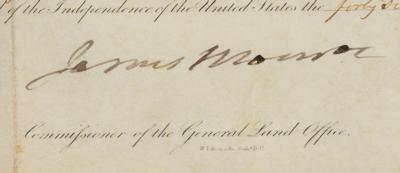 of the Independence of the United States the forty
James Monroe
Commissioner of the General Land Office.